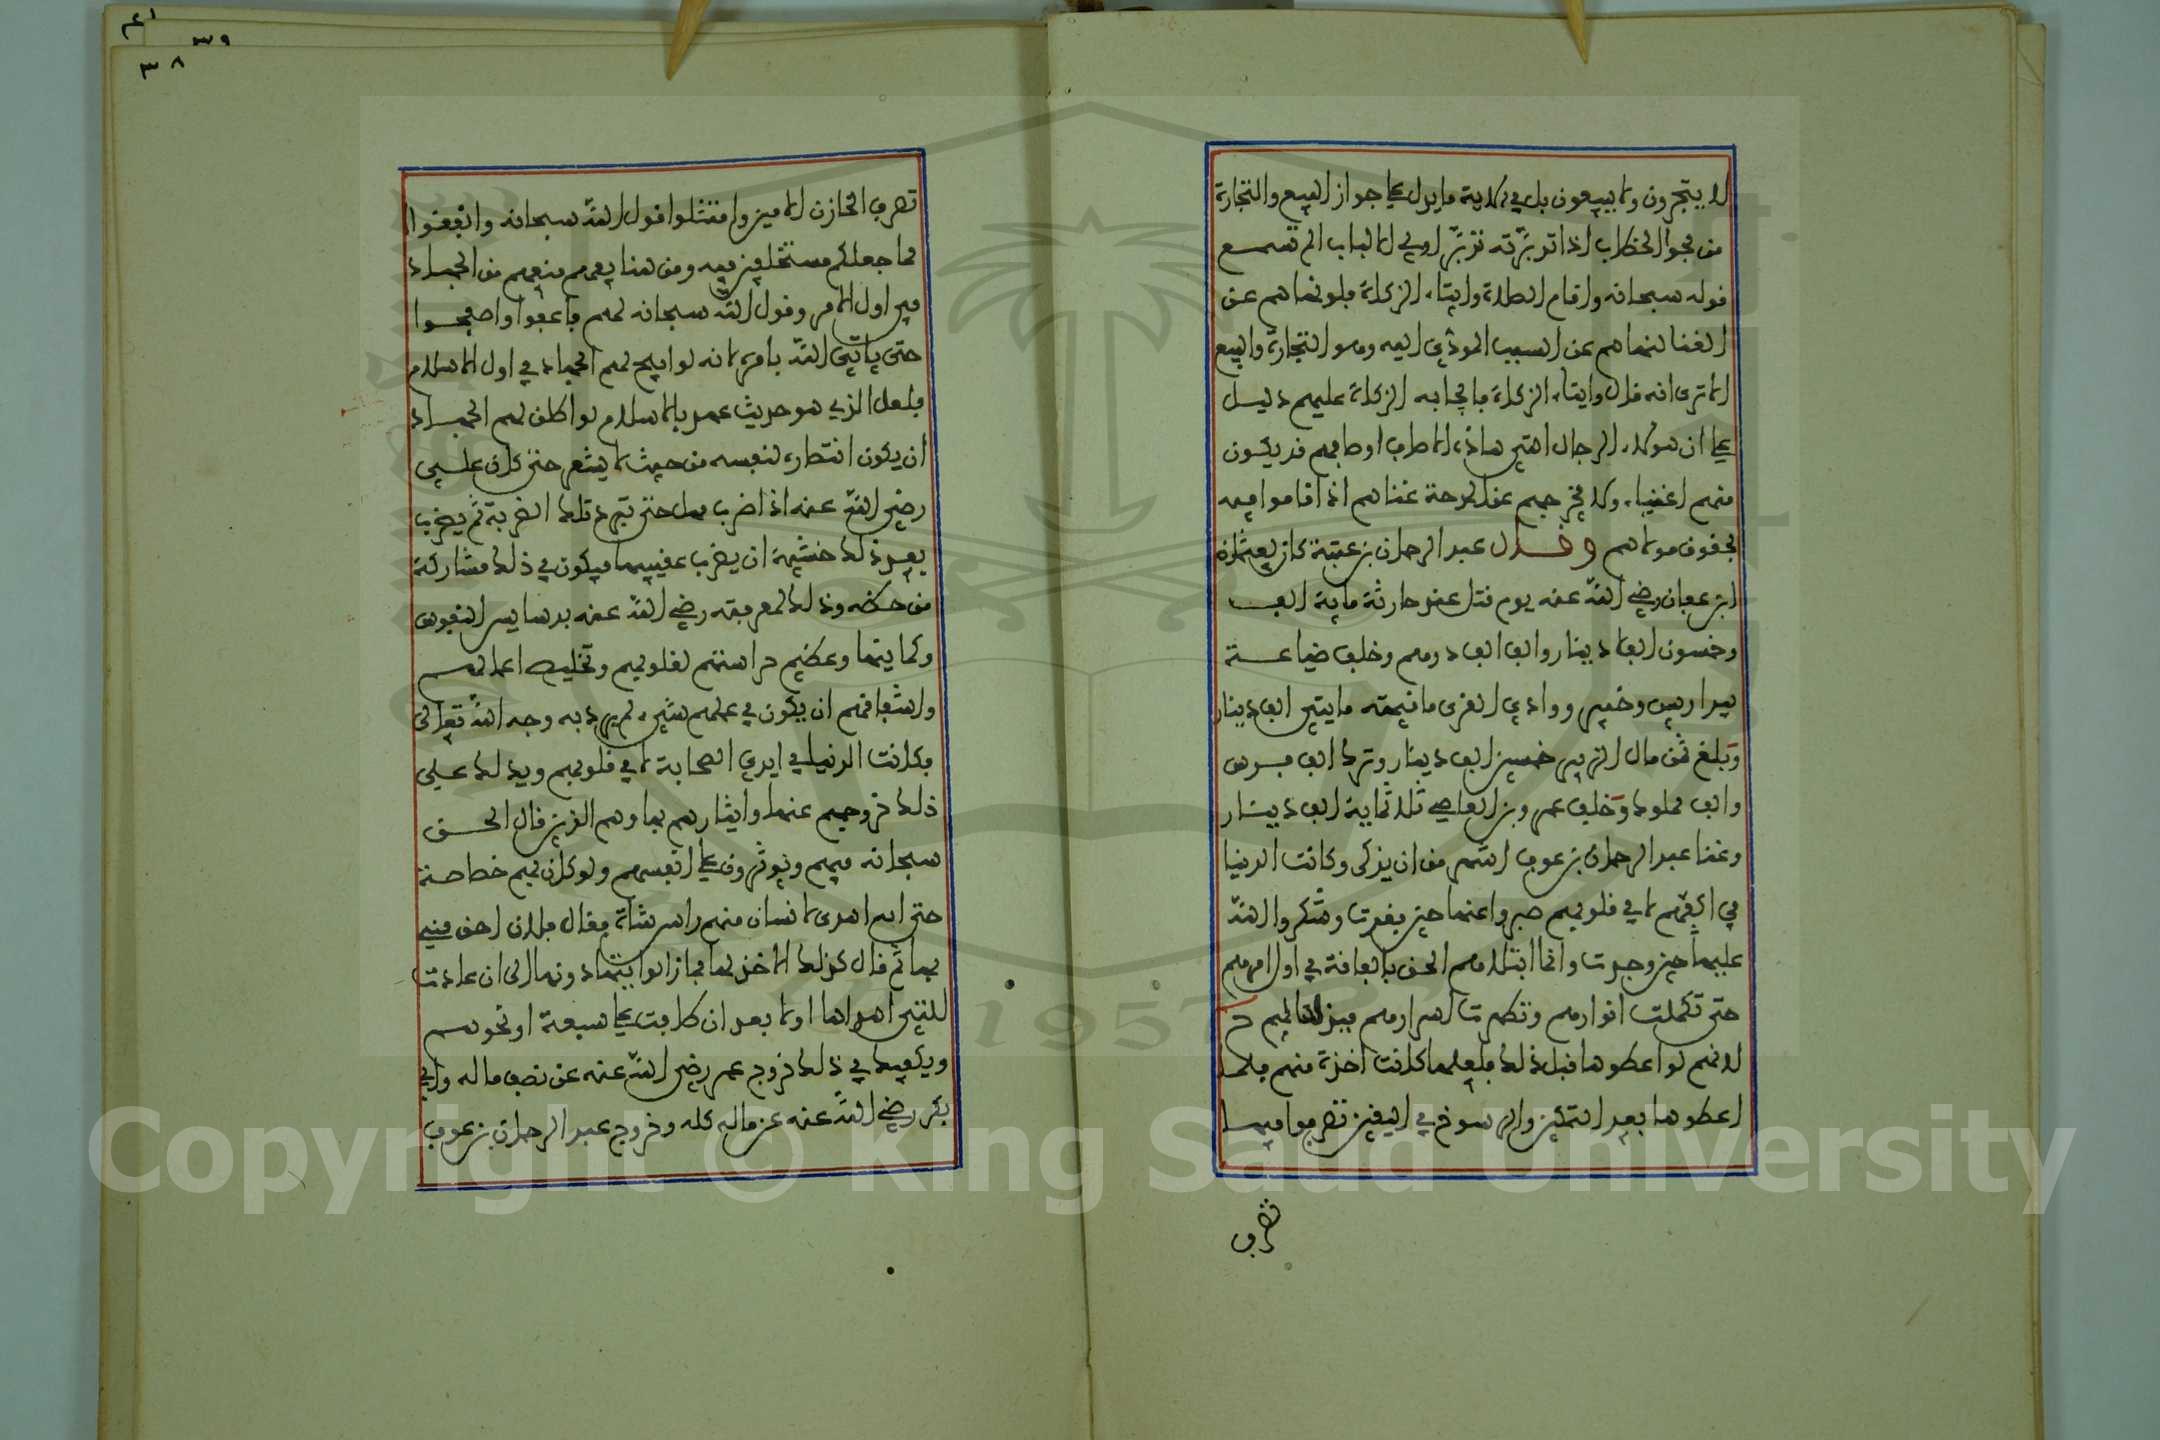 لا يتجرون ولا يبيعون بل في الاية ما يدل على جواز البيع والتجارة
من فحوا الخطاب اذا تدبرته تدبر اولي الالباب الم تسمع
قوله سبحانه واقام الصلاة وايتاء الزكاة فلو نهاهم عن
الغنا لنهاهم عن السبب المودي اليه وهو التجارة والبيع
الا ترى انه قال وايتاء الزكاة فايجابه الزكاة عليهم دليل
على ان هولاء الرجال الذين هاذه الاوصاف اوصافهم قد يكون
منهم اغنياء ولا يخرجهم عن المدحة غناهم اذا قاموا فيه
بحقوق مولاهم وقال عبد الرحمان بن عتبة كان لعثمان
ابن عفان رضي الله عنه يوم قتل عند خازنه ماية الف
وخمسون الف دينار والف الف درهم وخلف ضياعا
بير اريس وخيبر ووادي القرى ما قيمته مايتي الف دينار
وبلغ ثمن مال الزبير خمسين الف دينار وترك الف فرس
والف مملوك وخلف عمرو بن العاصي ثلاثماية الف دينار
وغنا عبد الرحمان بن عوف اشهر من ان يذكى وكانت الدنيا
في اكفهم لا في قلوبهم صبروا عنها حين فقدت وشكروا الله
عليها حين وجدت وانما ابتلاهم الحق بالفاقة في اول امرهم
حتى تكملت انوارهم وتطهرت اسرارهم فبذلها لهم ح
لانهم لو اعطوها قبل ذلك فلعلها كانت اخذة منهم فلما
اعطوها بعد التمكين والرسوخ في اليقين تصرفوا فيها
تصرف
٣٨
٣٩
تصرف الخازن الامين وامتثلوا قول الله سبحانه وانفقوا
مما جعلكم مستخلفين فيه ومن هنا يفهم منعهم من الجهاد
في اول الامر وقول الله سبحانه لهم فاعفوا واصفحوا
حتى ياتي الله بامره لانه لو ابيح لهم الجهاد في اول الاسلام
فلعل الذي هو حديث عهد بالاسلام لو اطلق لهم الجهاد
ان يكون انتصاره لنفسه من حيث لا يشعر حتى كان علي
رضي الله عنه اذا ضرب مهل حتى تبرد تلك الضربة ثم يضرب
بعد ذلك خشية ان يضرب عقيبها فيكون في ذلك مشاركة
من حظه وذلك لمعرفته رضي الله عنه بدسايس النفوس
وكماينها وعظيم حراستهم لقلوبهم وتخليص اعمالهم
واشفاقهم ان يكون في عملهم شيء لم يرد به وجه الله تعالى
فكانت الدنيا في ايدي الصحابة لا في قلوبهم ويدلك على
ذلك خروجهم عنها وايثارهم بها وهم الذين قال الحق
سبحانه فيهم ويوثرون على انفسهم ولو كان بهم خصاصة
حتى انه اهدى لانسان منهم راس شاة فقال فلان احق مني
بها ثم قال كذلك الاخذ لها فما زالوا يتهادونها الى ان عادت
للذي اهداها اولا بعد ان طافت على سبعة او نحوهم
ويكفيك في ذلك خروج عمر رضي الله عنه عن نصف ماله وابي
بكر رضي الله عنه عن ماله كله وخروج عبد الرحمان بن عوف
Copyright © King Saud University
1957